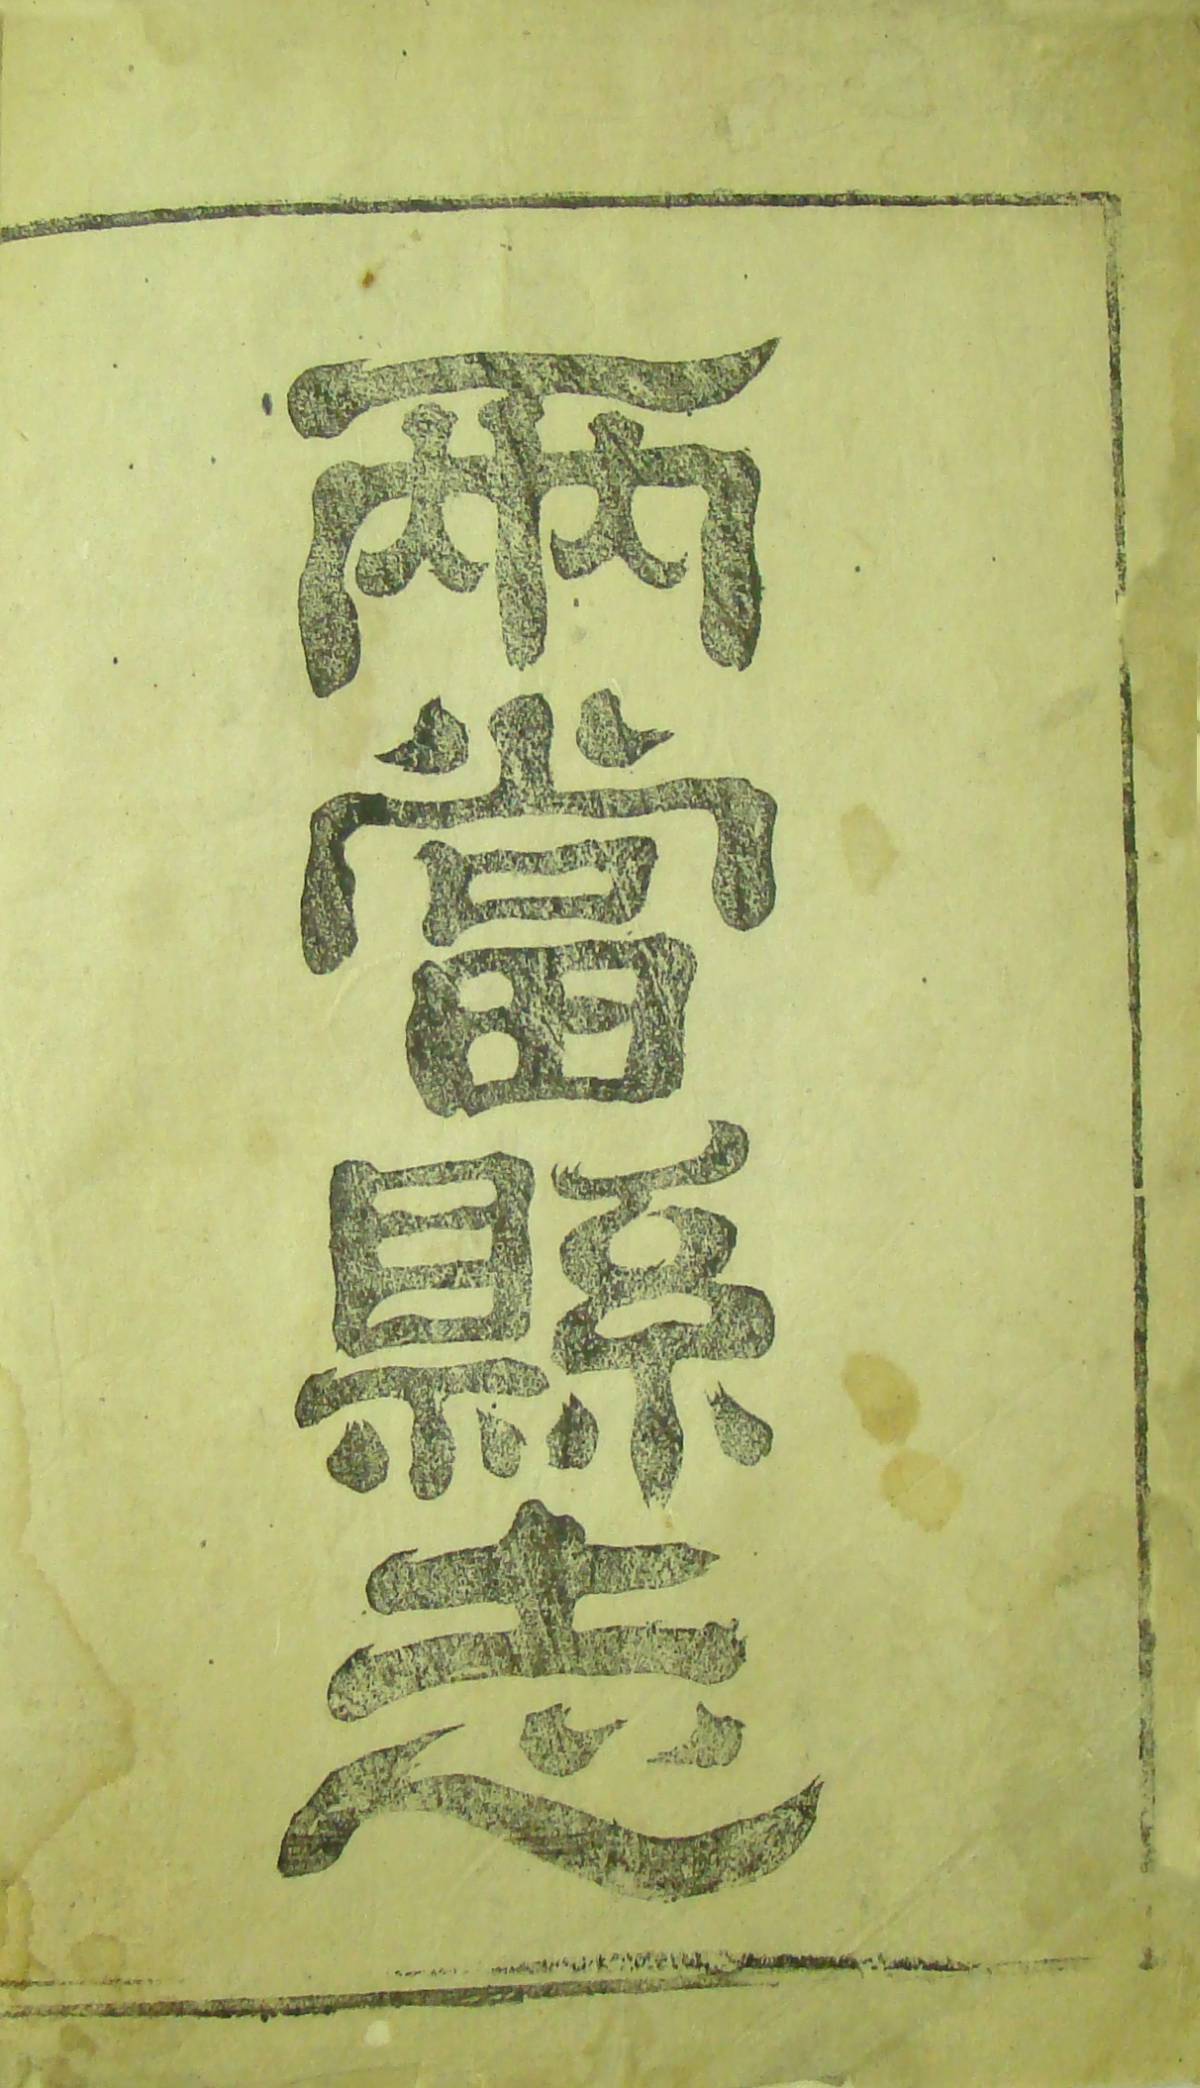 兩當縣志